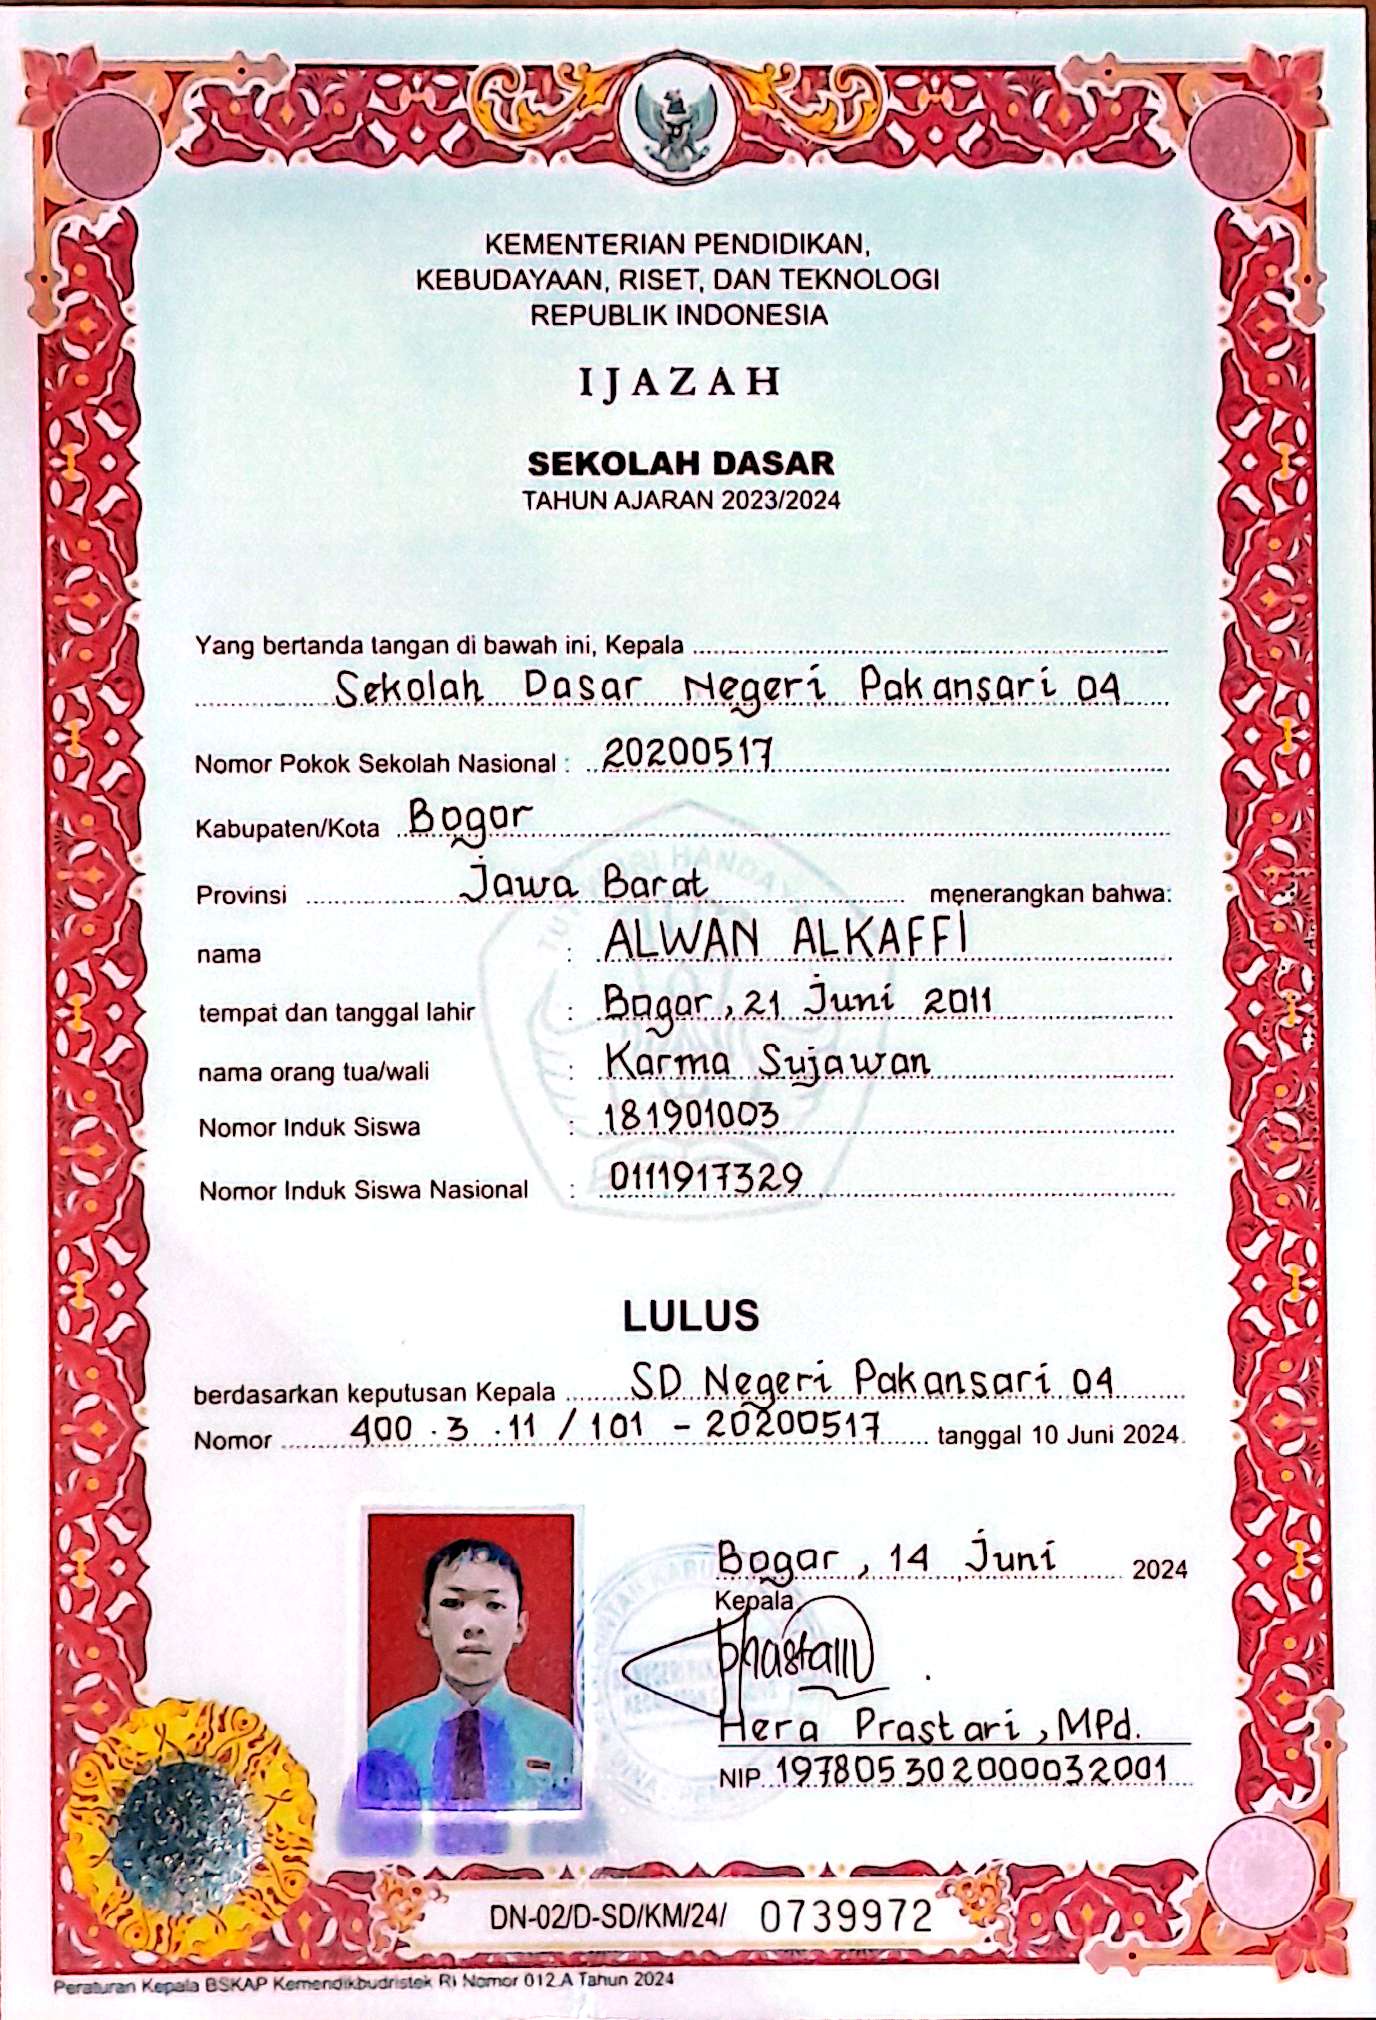 KEMENTERIAN PENDIDIKAN,
KEBUDAYAAN, RISET, DAN TEKNOLOGI
REPUBLIK INDONESIA
IJAZAH
SEKOLAH DASAR
TAHUN AJARAN 2023/2024
Yang bertanda tangan di bawah ini, Kepala
Sekolah Dasar Negeri Pakansari 04
Nomor Pokok Sekolah Nasional : 20200517
Kabupaten/Kota Bogor
Provinsi Jawa Barat menerangkan bahwa:
nama : ALWAN ALKAFFI
tempat dan tanggal lahir : Bogor, 21 Juni 2011
nama orang tua/wali : Karma Sujawan
Nomor Induk Siswa : 181901003
Nomor Induk Siswa Nasional : 0111917329
LULUS
berdasarkan keputusan Kepala SD Negeri Pakansari 04
Nomor 400.3.11/101-20200517 tanggal 10 Juni 2024.
Bogor, 14 Juni 2024
Kepala,
Hera Prastari, MPd.
NIP. 197805302000032001
DN-02/D-SD/KM/24/ 0739972
Peraturan Kepala BSKAP Kemendikbudristek RI Nomor 012.A Tahun 2024